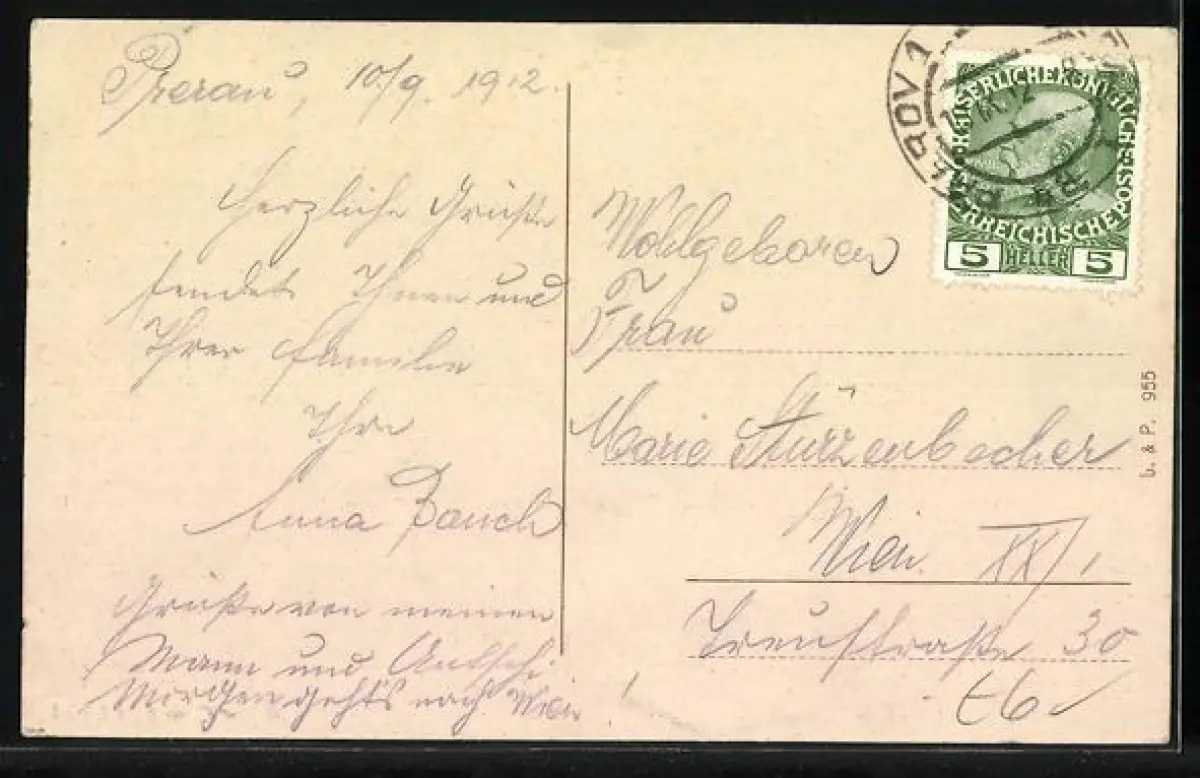 Prerau, 10/9. 1912.
Herzliche Grüße
sendet Ihnen und
Ihrer Familie
Ihre
Anna Bauch
Grüße von meinem
Mann und
Morgen geht's nach Wien!
PŘEROV 1
KAISERLICHE KÖNIGLICHE ÖSTERREICHISCHE POST
5 HELLER 5
Wohlgeboren
Frau
Marie Stürzenbecher
Wien XX/1
Treustraße 30
L. & P. 955